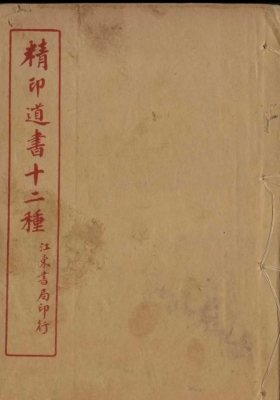 精印道書十二種
江東書局印行